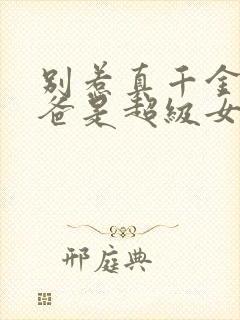 别惹真千金
爸是超级女
邢庭典